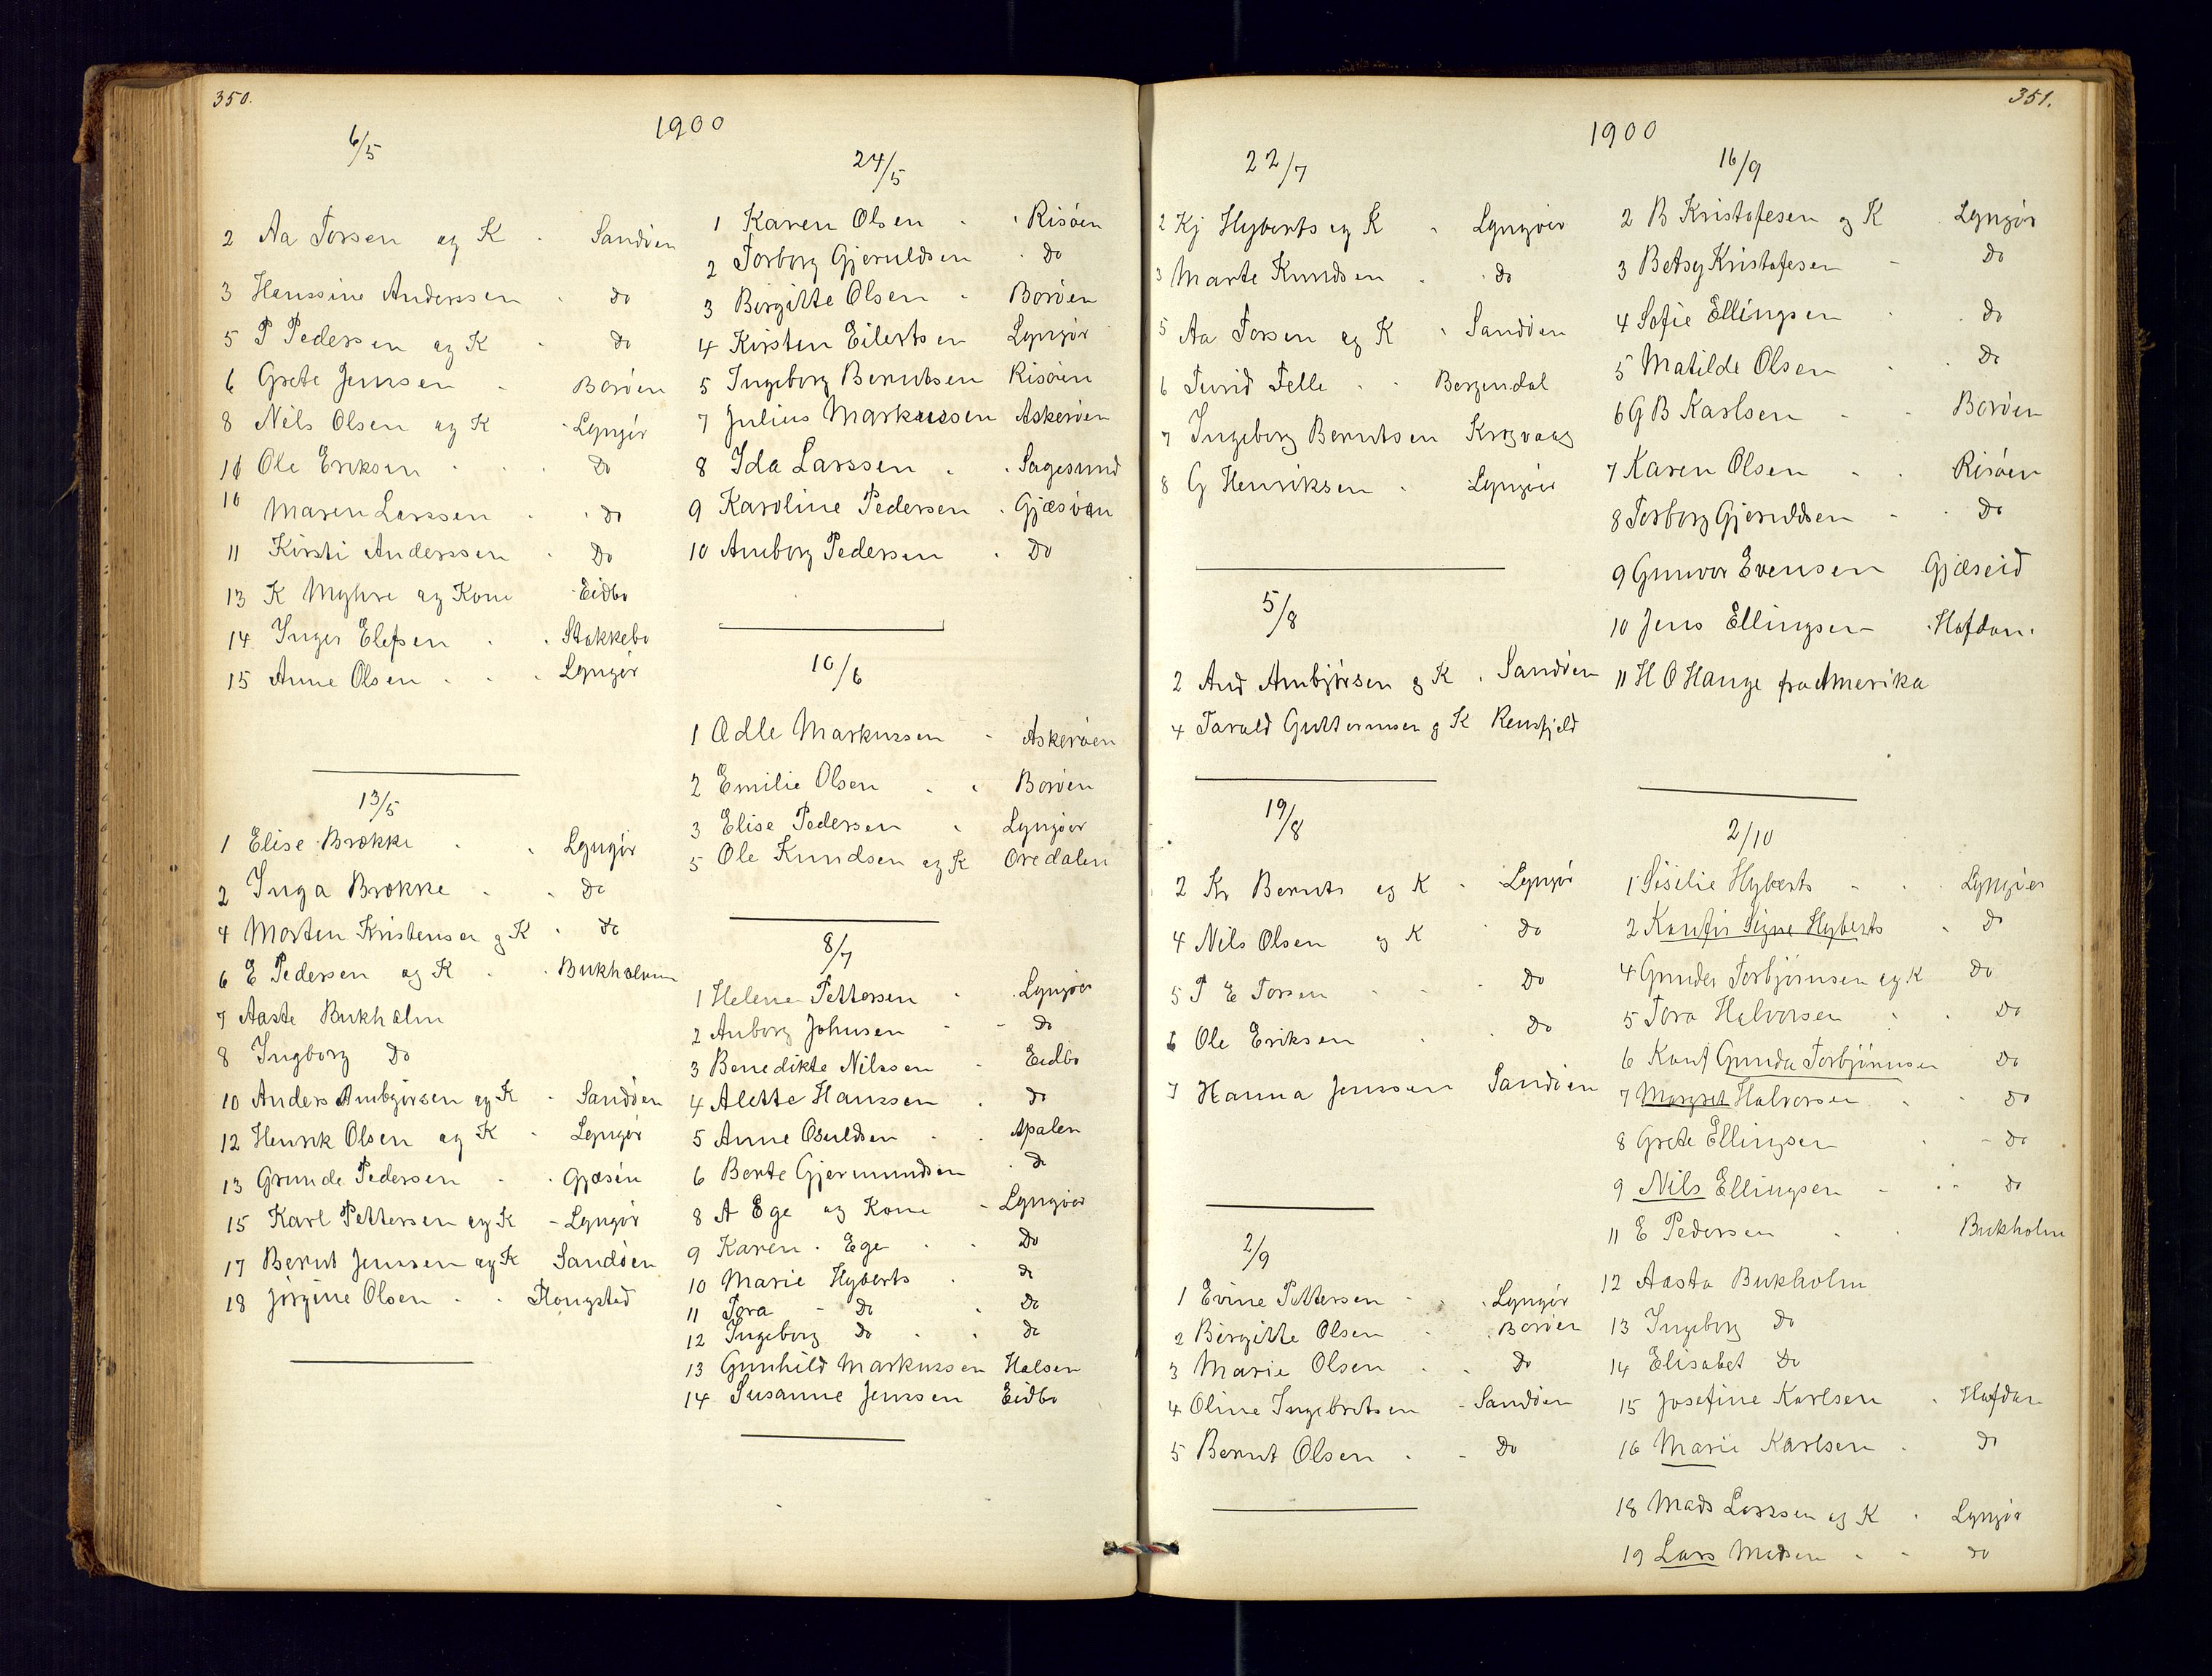 350.
1900
6/5
2 Aa Torsen og K Sandöen
3 Hanssine Anderssen do
5 P Pedersen og K do
6 Grete Jenssen Boröen
8 Nils Olsen og K Lyngör
Ole Eriksen Do
10 Maren Larssen do
11 Kirsti Anderssen Do
13 K Myhre og Kone Eidbo
14 Inger Elefsen Stokkebo
15 Anne Olsen Lyngör
13/5
1 Elise Brække Lyngör
2 Inga Brække Do
4 Morten Kristensen og K do
6 E Pedersen og K Bukholmen
7 Aaste Bukholm
8 Ingborg Do
10 Anders Arnbjørsen og K Sandöen
12 Henrik Olsen og K Lyngör
13 Grunde Pedersen Gjæsöen
15 Karl Pettersen og K Lyngör
17 Bernt Jenssen og K Sandöen
18 Jörgine Olsen
24/5
1 Karen Olsen Risöen
2 Torborg Gjeruldsen do
3 Birgitte Olsen Boröen
4 Kirsten Eilertsen Lyngör
5 Ingeborg Berntsen Risöen
7 Julius Markussen Askeröen
8 Ida Larssen Sagesund
9 Karoline Pedersen Gjæsöen
10 Amborg Pedersen Do
10/6
1 Odle Markussen Askeröen
2 Emilie Olsen Boröen
3 Elise Pedersen Lyngöer
5 Ole Knudsen og K Oredalen
8/7
1 Helene Pettersen Lyngöer
2 Anborg Johnsen Do
3 Benedikte Nilssen Eidbo
4 Alette Hanssen do
5 Anne Osuldsen Apalen
6 Berte Gjermundsen do
8 A Ege og Kone Lyngöer
9 Karen Ege Do
10 Marie Hyberts do
11 Tora Do Do
12 Ingeborg do do
13 Gunhild Markussen Halsen
14 Susanne Jenssen Eidbo
351.
1900
22/7
2 Kj Hyberts og K Lyngöer
3 Marte Knudsen do
5 Aa Torsen og K Sandöen
6 Turid Felle Bergendal
7 Ingeborg Berntsen Krogvaag
8 G Henriksen Lyngöer
5/8
2 And Arnbjörsen g K Sandöen
4 Tarald Guttormsen g K Rensfjeld
19/8
2 Kr Bernts og K Lyngör
4 Nils Olsen og K Do
5 P E Torsen Do
6 Ole Eriksen Do
7 Hanna Jenssen Sandöen
2/9
1 Evine Pettersen Lyngör
2 Birgitte Olsen Boröen
3 Marie Olsen Do
4 Oline Ingebretsen Sandöen
5 Bernt Olsen Do
16/9
2 B Kristofesen og K Lyngör
3 Betsy Kristofesen Do
4 Sofie Ellingsen Do
5 Matilde Olsen Do
6 G B Karlsen Boröen
7 Karen Olsen Risöen
8 Torborg Gjeruldsen Do
9 Gunvor Evensen Gjæseid
10 Jens Ellingsen Hafdan
11 H O Hauge fra Amerika
2/10
1 Siselie Hyberts Lyngöer
2 Konfir Signe Hyberts do
4 Gunder Torbjörnsen og K Do
5 Tora Halvorsen Do
6 Konf Gunda Torbjörnsen Do
7 Margret Halvorsen Do
8 Grete Ellingsen Do
9 Nils Ellingsen Do
11 E Pedersen Bukholm
12 Aasta Bukholm
13 Ingeborg Do
14 Elisabet Do
15 Josefine Karlsen Hafdan
16 Marie Karlsen do
18 Mads Larssen og K Lyngör
19 Lars Madsen do